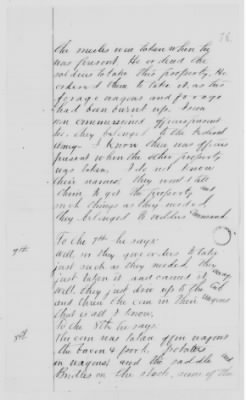 76.
the mules were taken when they
was present. He ordered the
soldiers to take this property. He
ordered them to take it as the
forage wagons and forage
had been burnt up. I saw
non commissioned officers present
they belonged to the Federal
Army. I know there was officers
present when the other property
was taken, I do not know
their names. They went & told
them to get the property and
such things as they needed,
they belonged to command.
To the 7th he says:
Well, they give orders to take
just such as they needed, they
just taken it and carried it away.
Well, they just drove up to the
and threw the corn in their wagons
that is all I know.
7th
To the 8th he says:
8th
The corn was taken off in wagons
the bacon & pork, potatoes
in wagons, and the saddle and
Bridles on the stock, some of the